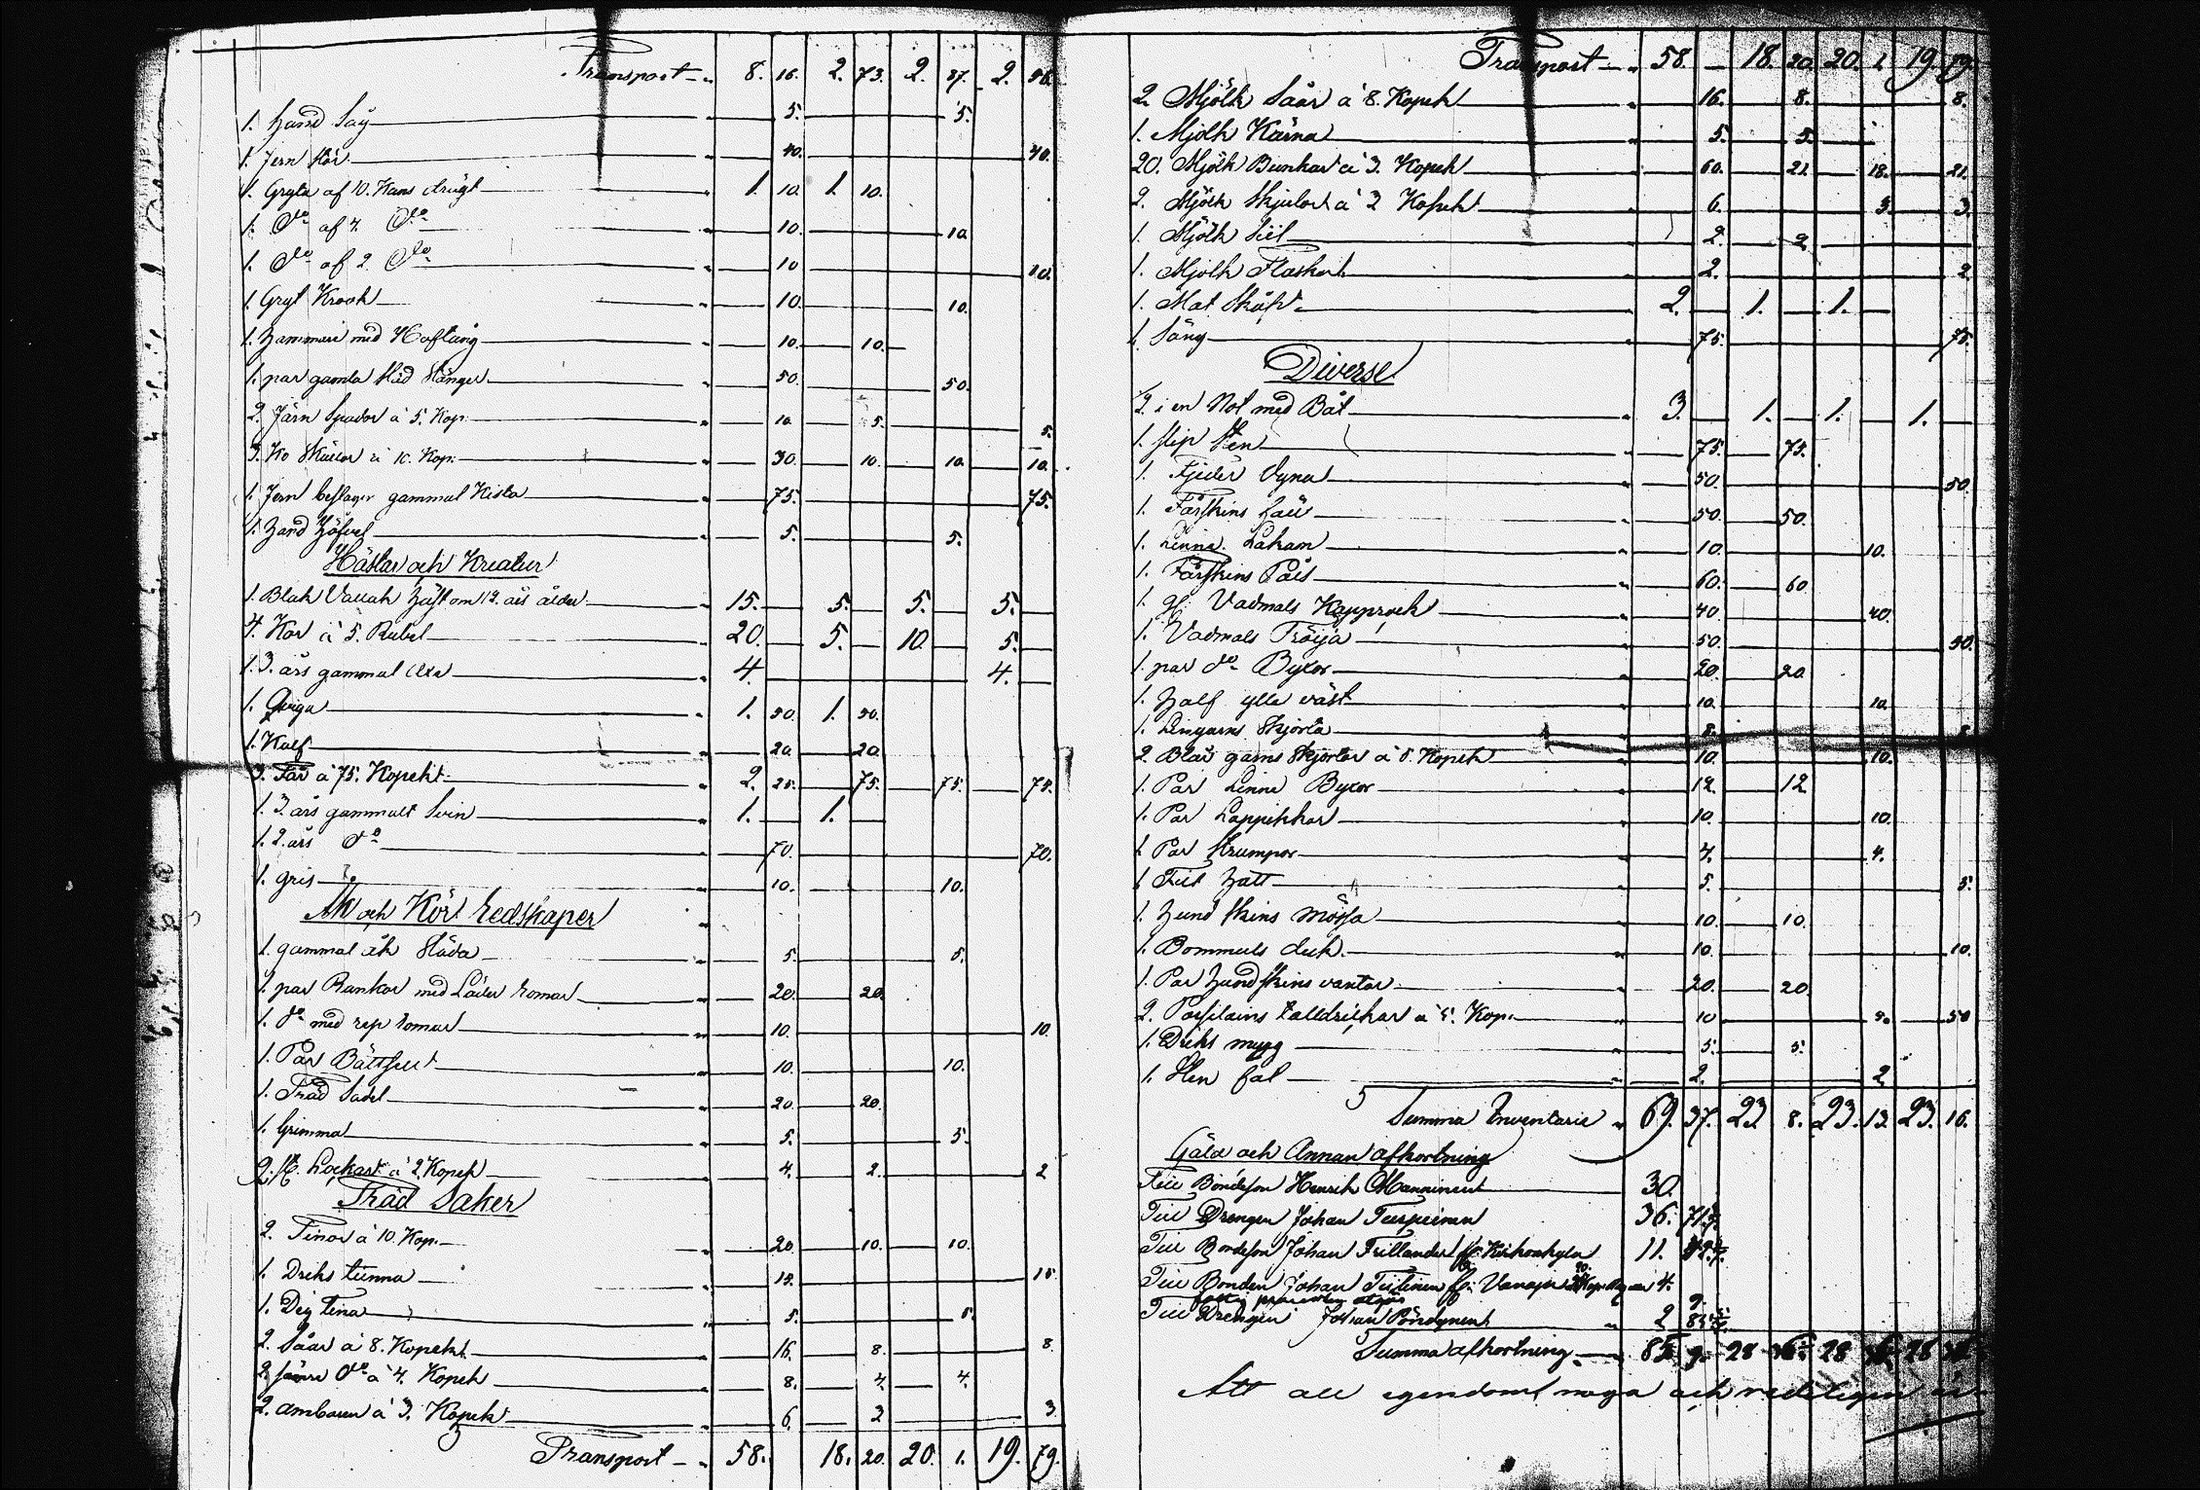 Transport 8. 16. 2. 73. 2. 87. 2. 56.
1. hand Såg 5. 5.
1. Jern Stör 40. 40.
1. Gryta af 10. Kans drügt 1. 10. 1. 10.
1. do af 7. do 10. 10.
1. do af 2. do 10 10.
1. Gryt Krook 10. 10.
1. Hammare med Hoftäng 10. 10.
1. par gamla Släd Stänger 50. 50.
2. Järn Spador a 5. Kop. 10. 5. 5.
3. Ko Skällor a 10. Kop. 30. 10. 10. 10.
1. Jern beslagen gammal Kista 75. 75.
1. Hand Höfvel 5. 5.
Hästar och Kreatur
1. Blak Vallak Häst om 19. års ålder 15. 5. 5. 5.
4. Kor a 5. Rubel 20. 5. 10. 5.
1. 3. års gammal Oxe 4. 4.
1. Qviga 1. 50. 1. 50.
1. Kalf 20. 20.
3. Får a 75. Kopek 2. 25. 75. 75. 75.
1. 3. års gammalt Svin 1. 1.
1. 2. års do 70. 70.
1. gris 10. 10.
Åk och Kör Redskaper
1. gammal åk Släda 5. 5.
1. par Rankor med Läder Romar 20. 20.
1. do med rep Romar 10. 10.
1. Par 10. 10.
1. Träd Sadel 20. 20.
1. Grimma 5. 5.
2. St. Lockast a 2. Kopek 4. 2. 2
Träd Saker
2. Tinor a 10. Kop. 20. 10. 10.
1. Driks tunna 15. 15
1. Deg Tina 5. 5.
2. Såar a 8. Kopek 16. 8. 8.
2. sämre do a 4. Kopek 8. 4. 4.
2. ämbaren a 3. Kopek 6. 3 3.
Transport 58. 18. 20. 20. 1. 19. 79.
Transport 58. 18. 20. 20. 1. 19. 79.
2 Mjölk Såar a 8. Kopek 16. 8. 8.
1. Mjölk Kärna 5. 5.
20. Mjölk Bunkar a 3. Kopek 60. 21. 18. 21.
2. Mjölk Skjulor a 3 Kopek 6. 3. 3.
1. Mjölk Sil 2. 2
1. Mjölk Flaska 2. 2
1. Mat Skåp 2. 1. 1.
1. Säng 75. 75.
Diverse
i en Not med Båt 3. 1. 1. 1.
1. Slip Sten 75. 75.
1. Fjeder Dyna 50. 50.
1. Fårskins Fäll 50. 50.
1. Linne Lakam 10. 10.
1. Fårskins Päls 60. 60.
1. Vadmals Kapprock 40. 40.
1. Vadmals Tröija 50. 50.
1. par do Byxor 20. 20.
1. Half ylle väst 10. 10.
1. Lingarns Skjorta 8. 8
2. Blår garns Skjortor a 5. Kopek 10. 10.
1. Par Linne Byxor 12. 12
1. Par Lappikkor 10. 10.
1. Par Strumpor 4. 4.
1. Filt Hatt 5. 5.
1. Hund Skins Mössa 10. 10.
1. Bommuls duk 10. 10.
1. Par Hundskins vantar 20. 20.
2. Porslains talldrikkar a 5. Kop. 10 5. 50
1. Driks mugg 5. 5.
1. Sten fat 2. 2
Summa Inventarie 69. 37. 23 8. 23. 13. 23. 16.
Gäld och Annan afkortning
Till Bondeson Henrik Manninen 30.
Till Drengen Johan 36. 71
Till Bondeson Johan Frillander 11.
Till Bonden Johan 4.
Till Drengen Johan Pöndynen 2
Summa afkortning 85. 9. 28 28 28
Att all egendom noga och redeligen är